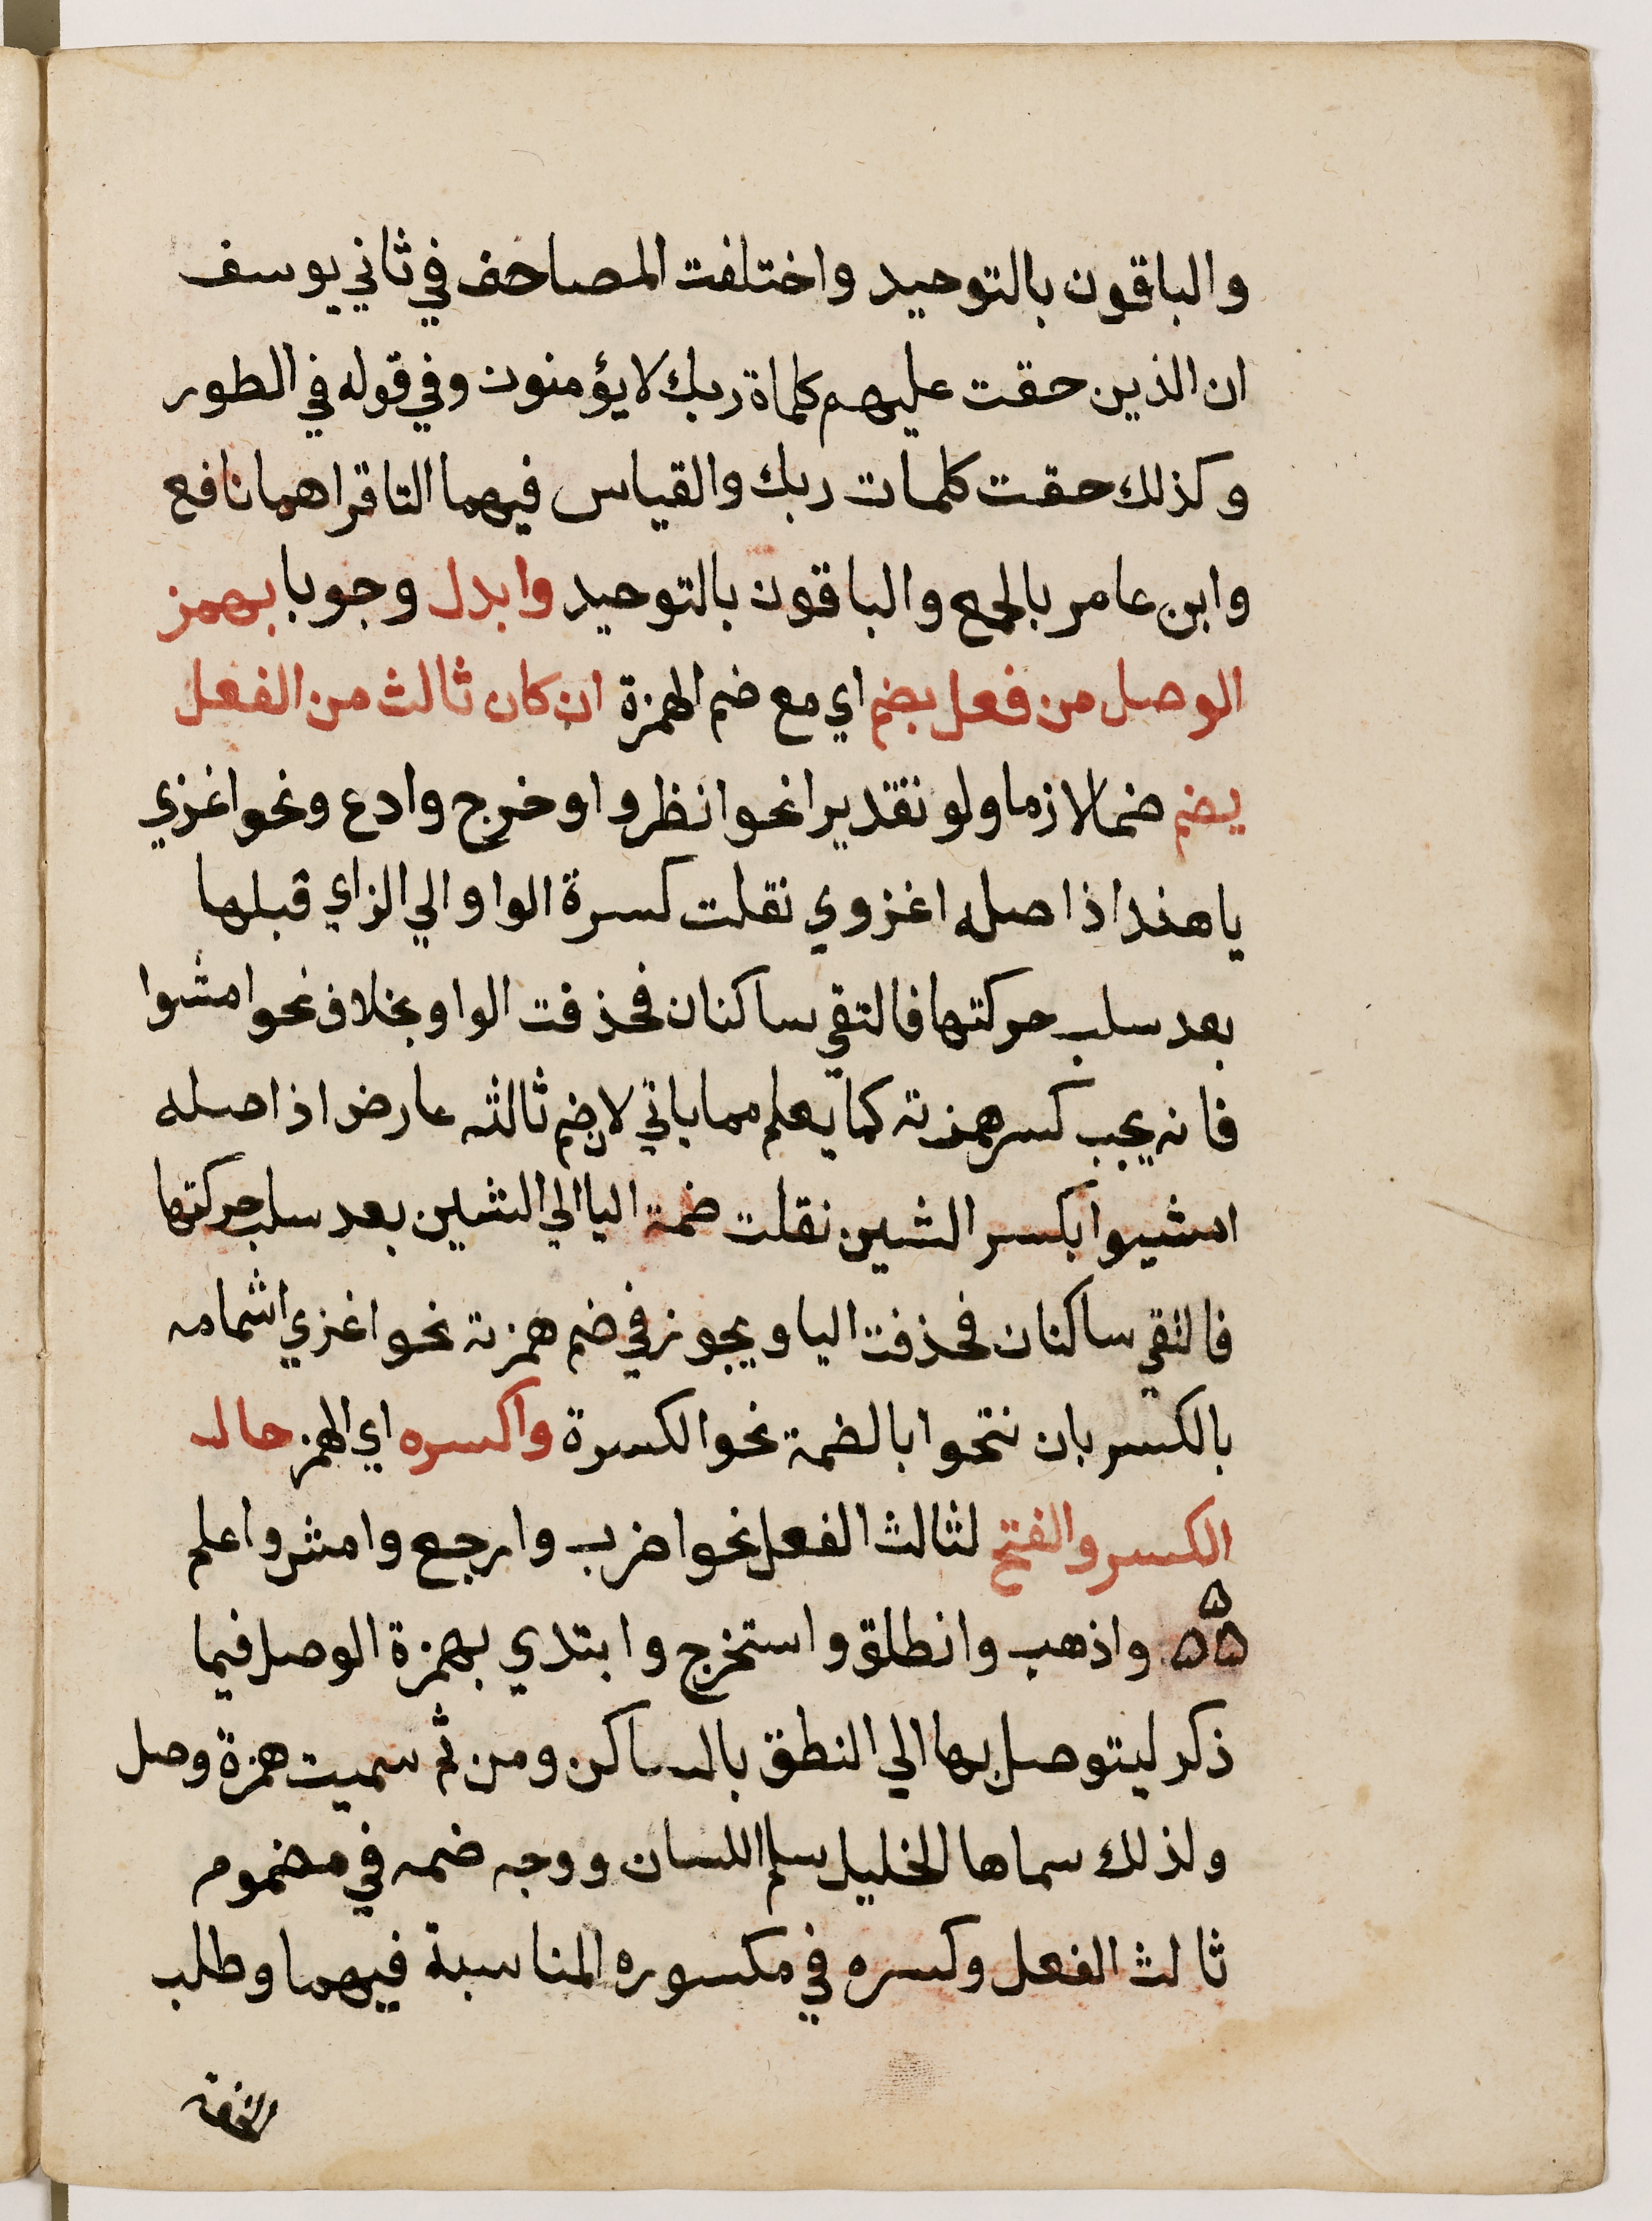 والباقون بالتوحيد واختلفت المصاحف في ثاني يوسف
ان الذين حقت عليهم كلماة ربك لا يؤمنون وفي قوله في الطور
وكذلك حقت كلمات ربك والقياس فيهما التا قراهما نافع
وابن عامر بالجمع والباقون بالتوحيد وابدل وجوبا بهمز
الوصل من فعل بضم اي مع ضم الهمزة ان كان ثالث من الفعل
يضم ضما لازما ولو نقديرا نحو انظروا وخرج وادع ونحو اغزي
يا هند اذ اصله اغزوي نقلت كسرة الواو الي الزاي قبلها
بعد سلب حركتها فالتقي ساكنان فحذفت الواو بخلاف نحو امشوا
فانه يجب كسر همزته كما يعلم مما ياتي لان ضم ثالثه عارض اذ اصله
امشيوا بكسر الشين نقلت ضمة اليا الي الشين بعد سلب حركتها
فالتقي ساكنان فحذفت اليا ويجوز في ضم همزته نحو اغزي اشمامه
بالكسر بان نتحوا بالضمة نحو الكسرة واكسره اي الهمز حال
الكسر والفتح لثالث الفعل نحو اضرب وارجع وامش واعلم
ه ه ه واذهب وانطلق واستخرج وابتدي بهمزة الوصل فيما
ذكر ليتوصل بها الي النطق بالساكن ومن ثم سميت همزة وصل
ولذلك سماها الخليل سلم اللسان ووجه ضمه في مضموم
ثالث الفعل وكسره في مكسوره المناسبة فيهما وطلب